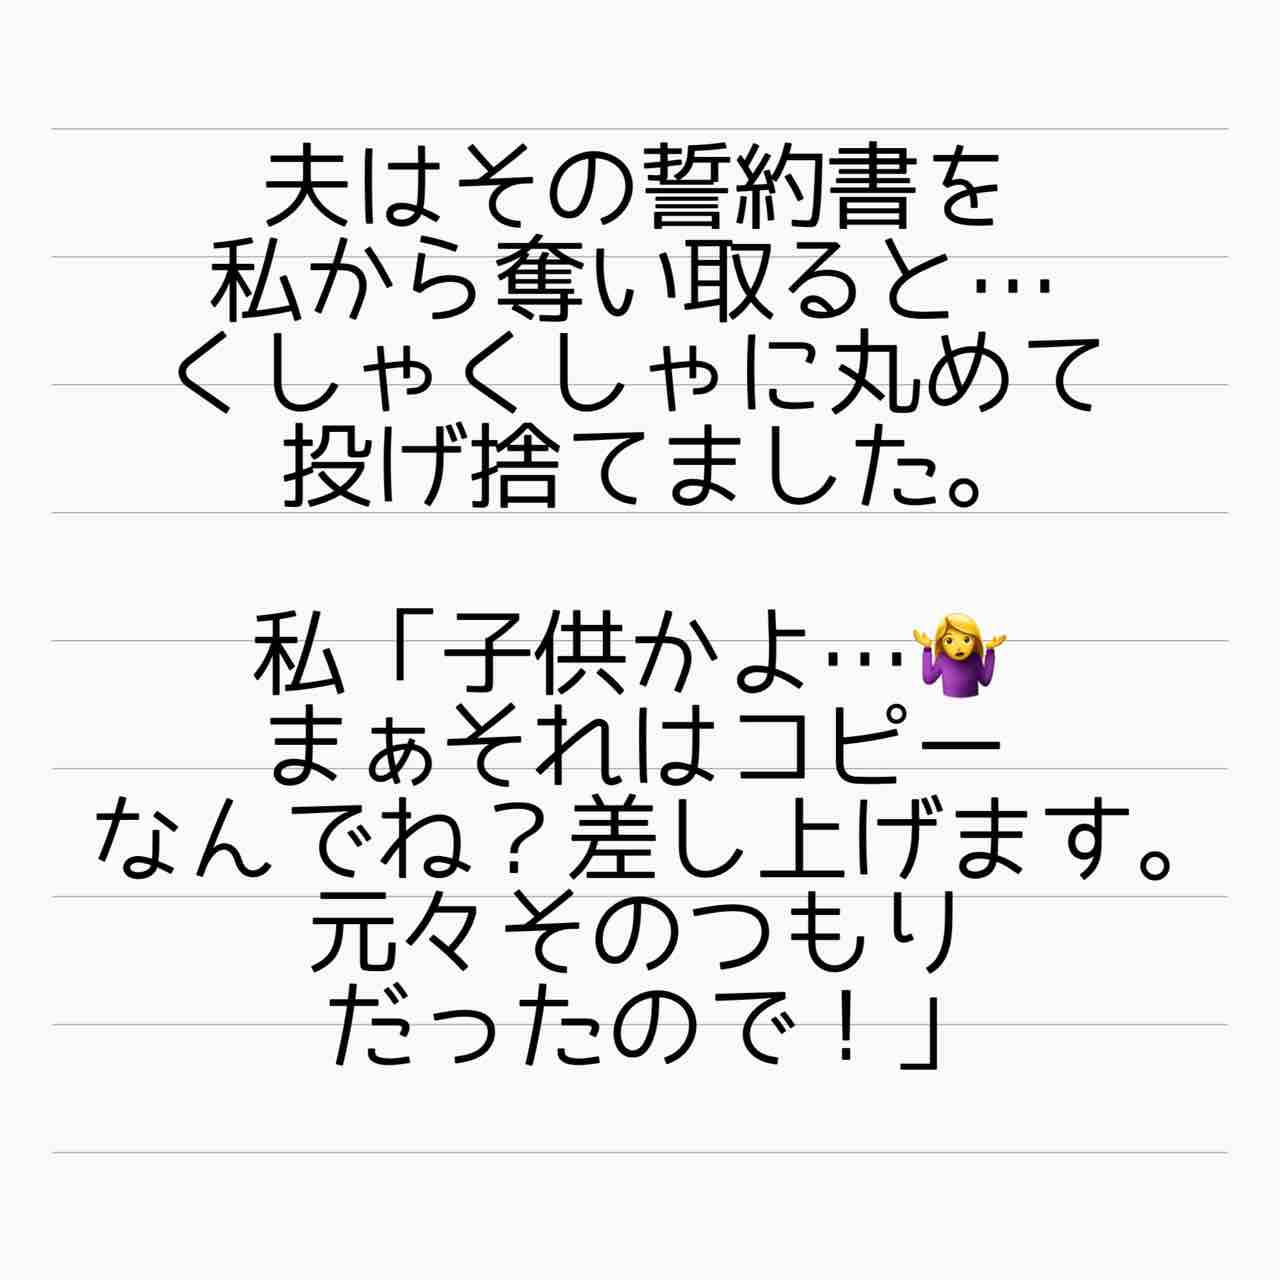 夫はその誓約書を
私から奪い取ると…
くしゃくしゃに丸めて
投げ捨てました。
私「子供かよ…🤷‍♀️
まぁそれはコピー
なんでね？差し上げます。
元々そのつもり
だったので！」